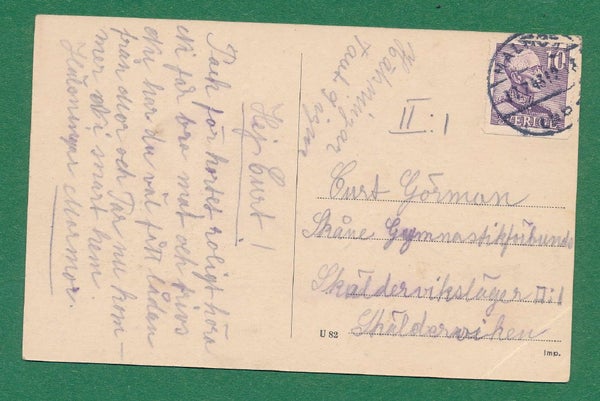 Hej Curt!
Tack för kortet, roligt höra
att får bra mat och trivs
nu har du väl fått lådan
från mor och Far nu kom-
mer du snart hem
Hälsningar Mormor.
Hälsningar
II:1
Curt Görman
Skåne Gymnastikförbunds
Skälderviksläger II:1
Skälderviken
U 82
Imp.
MALMÖ
10
SVERIGE